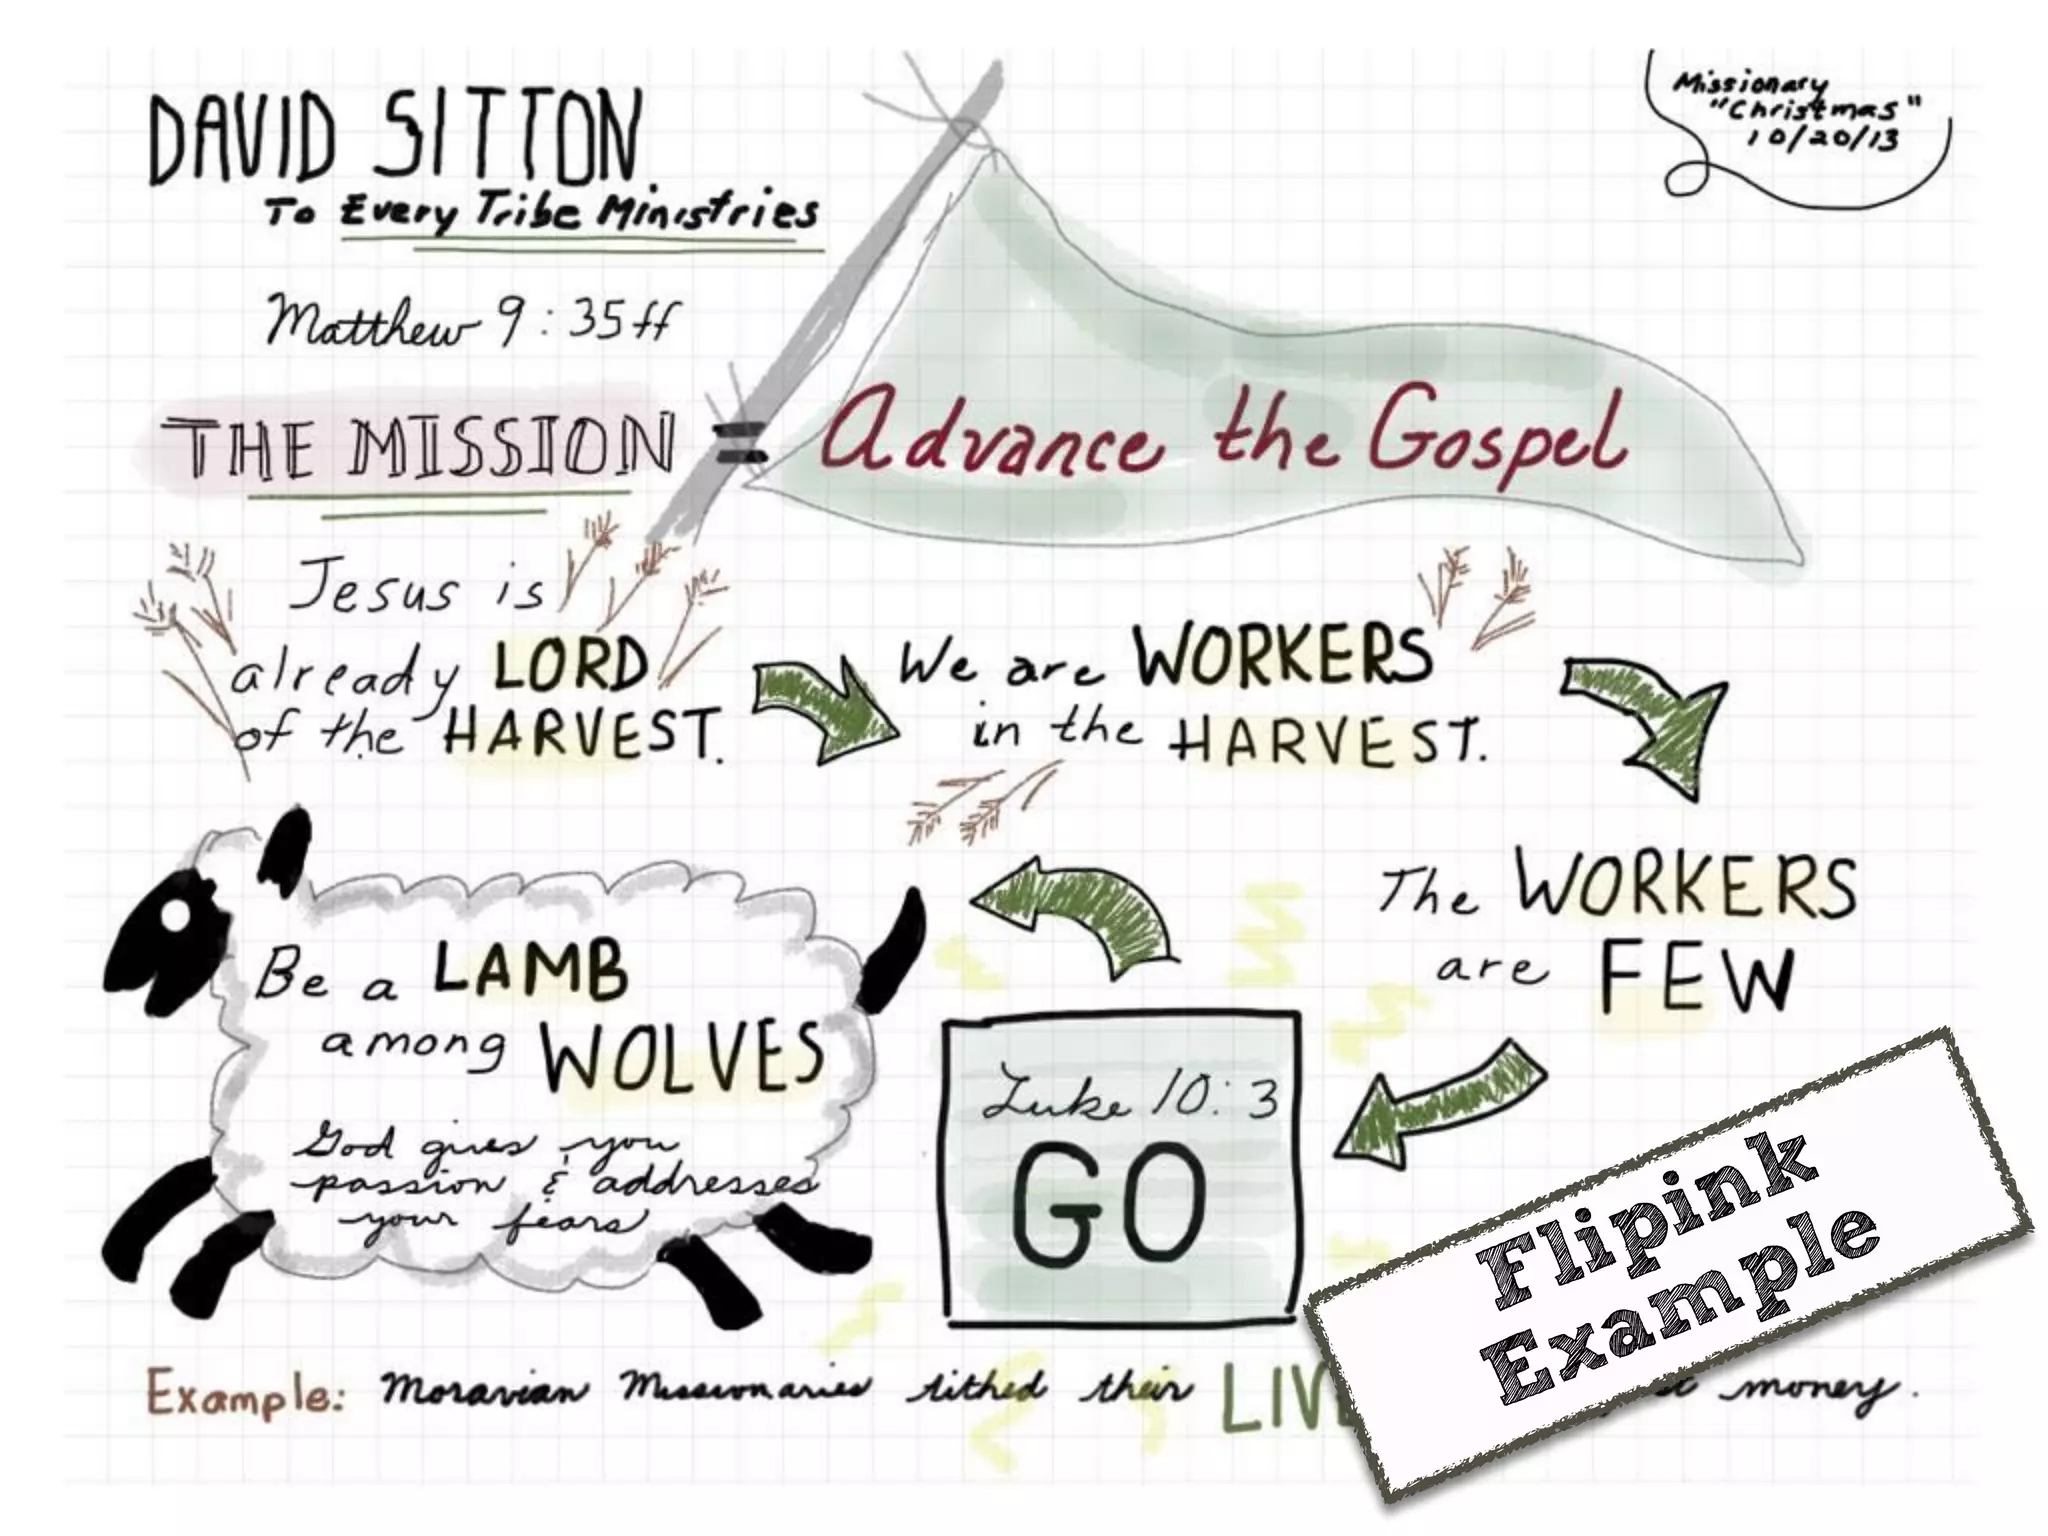 DAVID SITTON
To Every Tribe Ministries
Missionary
"Christmas"
10/20/13
Matthew 9:35ff
THE MISSION = Advance the Gospel
Jesus is
already LORD
of the HARVEST.
We are WORKERS
in the HARVEST.
The WORKERS
are FEW
Luke 10:3
GO
Be a LAMB
among WOLVES
God gives you
passion & addresses
your fears
Example: Moravian Missionaries tithed their money.
Flipink
Example